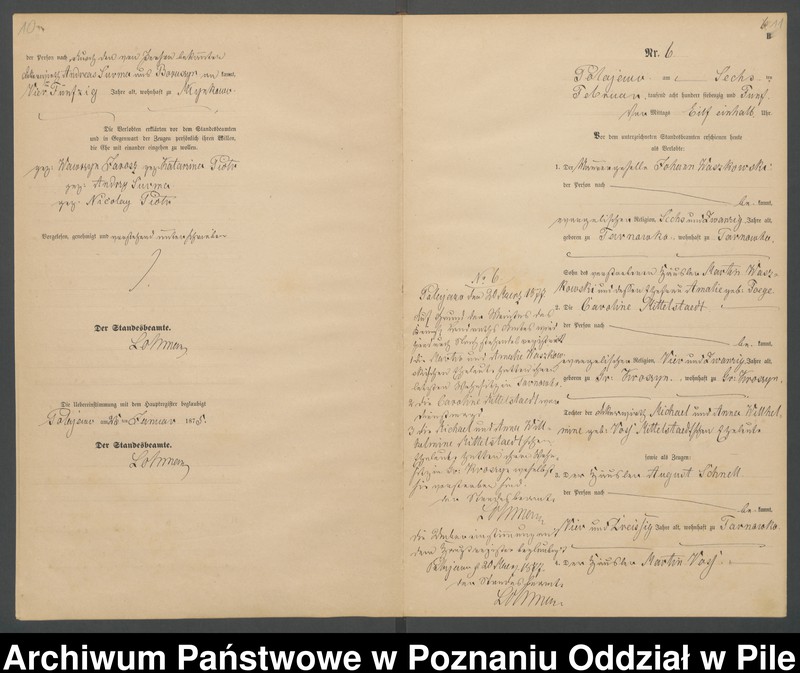 10
der Person nach durch den von Person bekannten
Ackerwirth Andreas Surma aus Boruszyn an kannt,
Vier Fünfzig Jahre alt, wohnhaft zu Mlynkowo.
Die Verlobten erklärten vor dem Standesbeamten
und in Gegenwart der Zeugen persönlich ihren Willen,
die Ehe mit einander eingehen zu wollen.
gez: Wawrzyn Jarosz gez: Katarina Piotr
gez: Andrzy Surma
gez. Nicolay Piotr
Vorgelesen, genehmigt und vorstehend unterschrieben
Der Standesbeamte.
Lohmen
Die Uebereinstimmung mit dem Hauptregister beglaubigt
Polajewo am Januar 1875.
Der Standesbeamte.
Lohmen
11
B
Nr. 6
Polajewo am Sechs ten
Februar tausend acht hundert siebenzig und Fünf
Vor Mittags Eilf einhalb Uhr.
Vor dem unterzeichneten Standesbeamten erschienen heute
als Verlobte:
1. Der Maurergeselle Johann Waszkowski
der Person nach
be kannt,
evangelischer Religion, Sechs und Zwanzig Jahre alt,
geboren zu Tarnowko, wohnhaft zu Tarnowko.
Sohn des verstorbenen Häusler Martin Wasz-
kowski und dessen Ehefrau Amalie geb: Poege
2. Die Caroline Mittelstaedt
der Person nach
be kannt,
evangelischer Religion, Vier und Zwanzig Jahre alt,
geboren zu Gr: Kroszyn, wohnhaft zu Gr: Kroszyn,
Tochter der Ackerwirth Michael und Anna Wilhel
mine geb: Voß Mittelstaedtschen Eheleute
sowie als Zeugen:
3. Der Häusler August Schnell
der Person nach
be kannt,
Vier und Dreissig Jahre alt, wohnhaft zu Tarnowko
4. Der Häusler Martin Voß
No 6.
Polajewo den 20 Maerz 1877.
Auf Grund der des
Königl. Landraths Amtes wird
hierdurch
1 die Martin und Amalie Waszkow
skischen Eheleute hatten ihren
letzten Wohnsitz in Tarnowko
2 die Caroline Mittelstaedt war
3 die Michael und Anna Wil-
helmine Mittelstaedtschen
Eheleute hatten ihren Wohn
sitz in Gr: Kroszyn woselbst
sie verstorben sind.
der Standesbeamte
Lohmen
die Uebereinstimmung mit
dem Hauptregister beglaubigt
Polajewo d 20 Maerz 1877.
der Standesbeamte
Lohmen
Archiwum Państwowe w Poznaniu Oddział w Pile